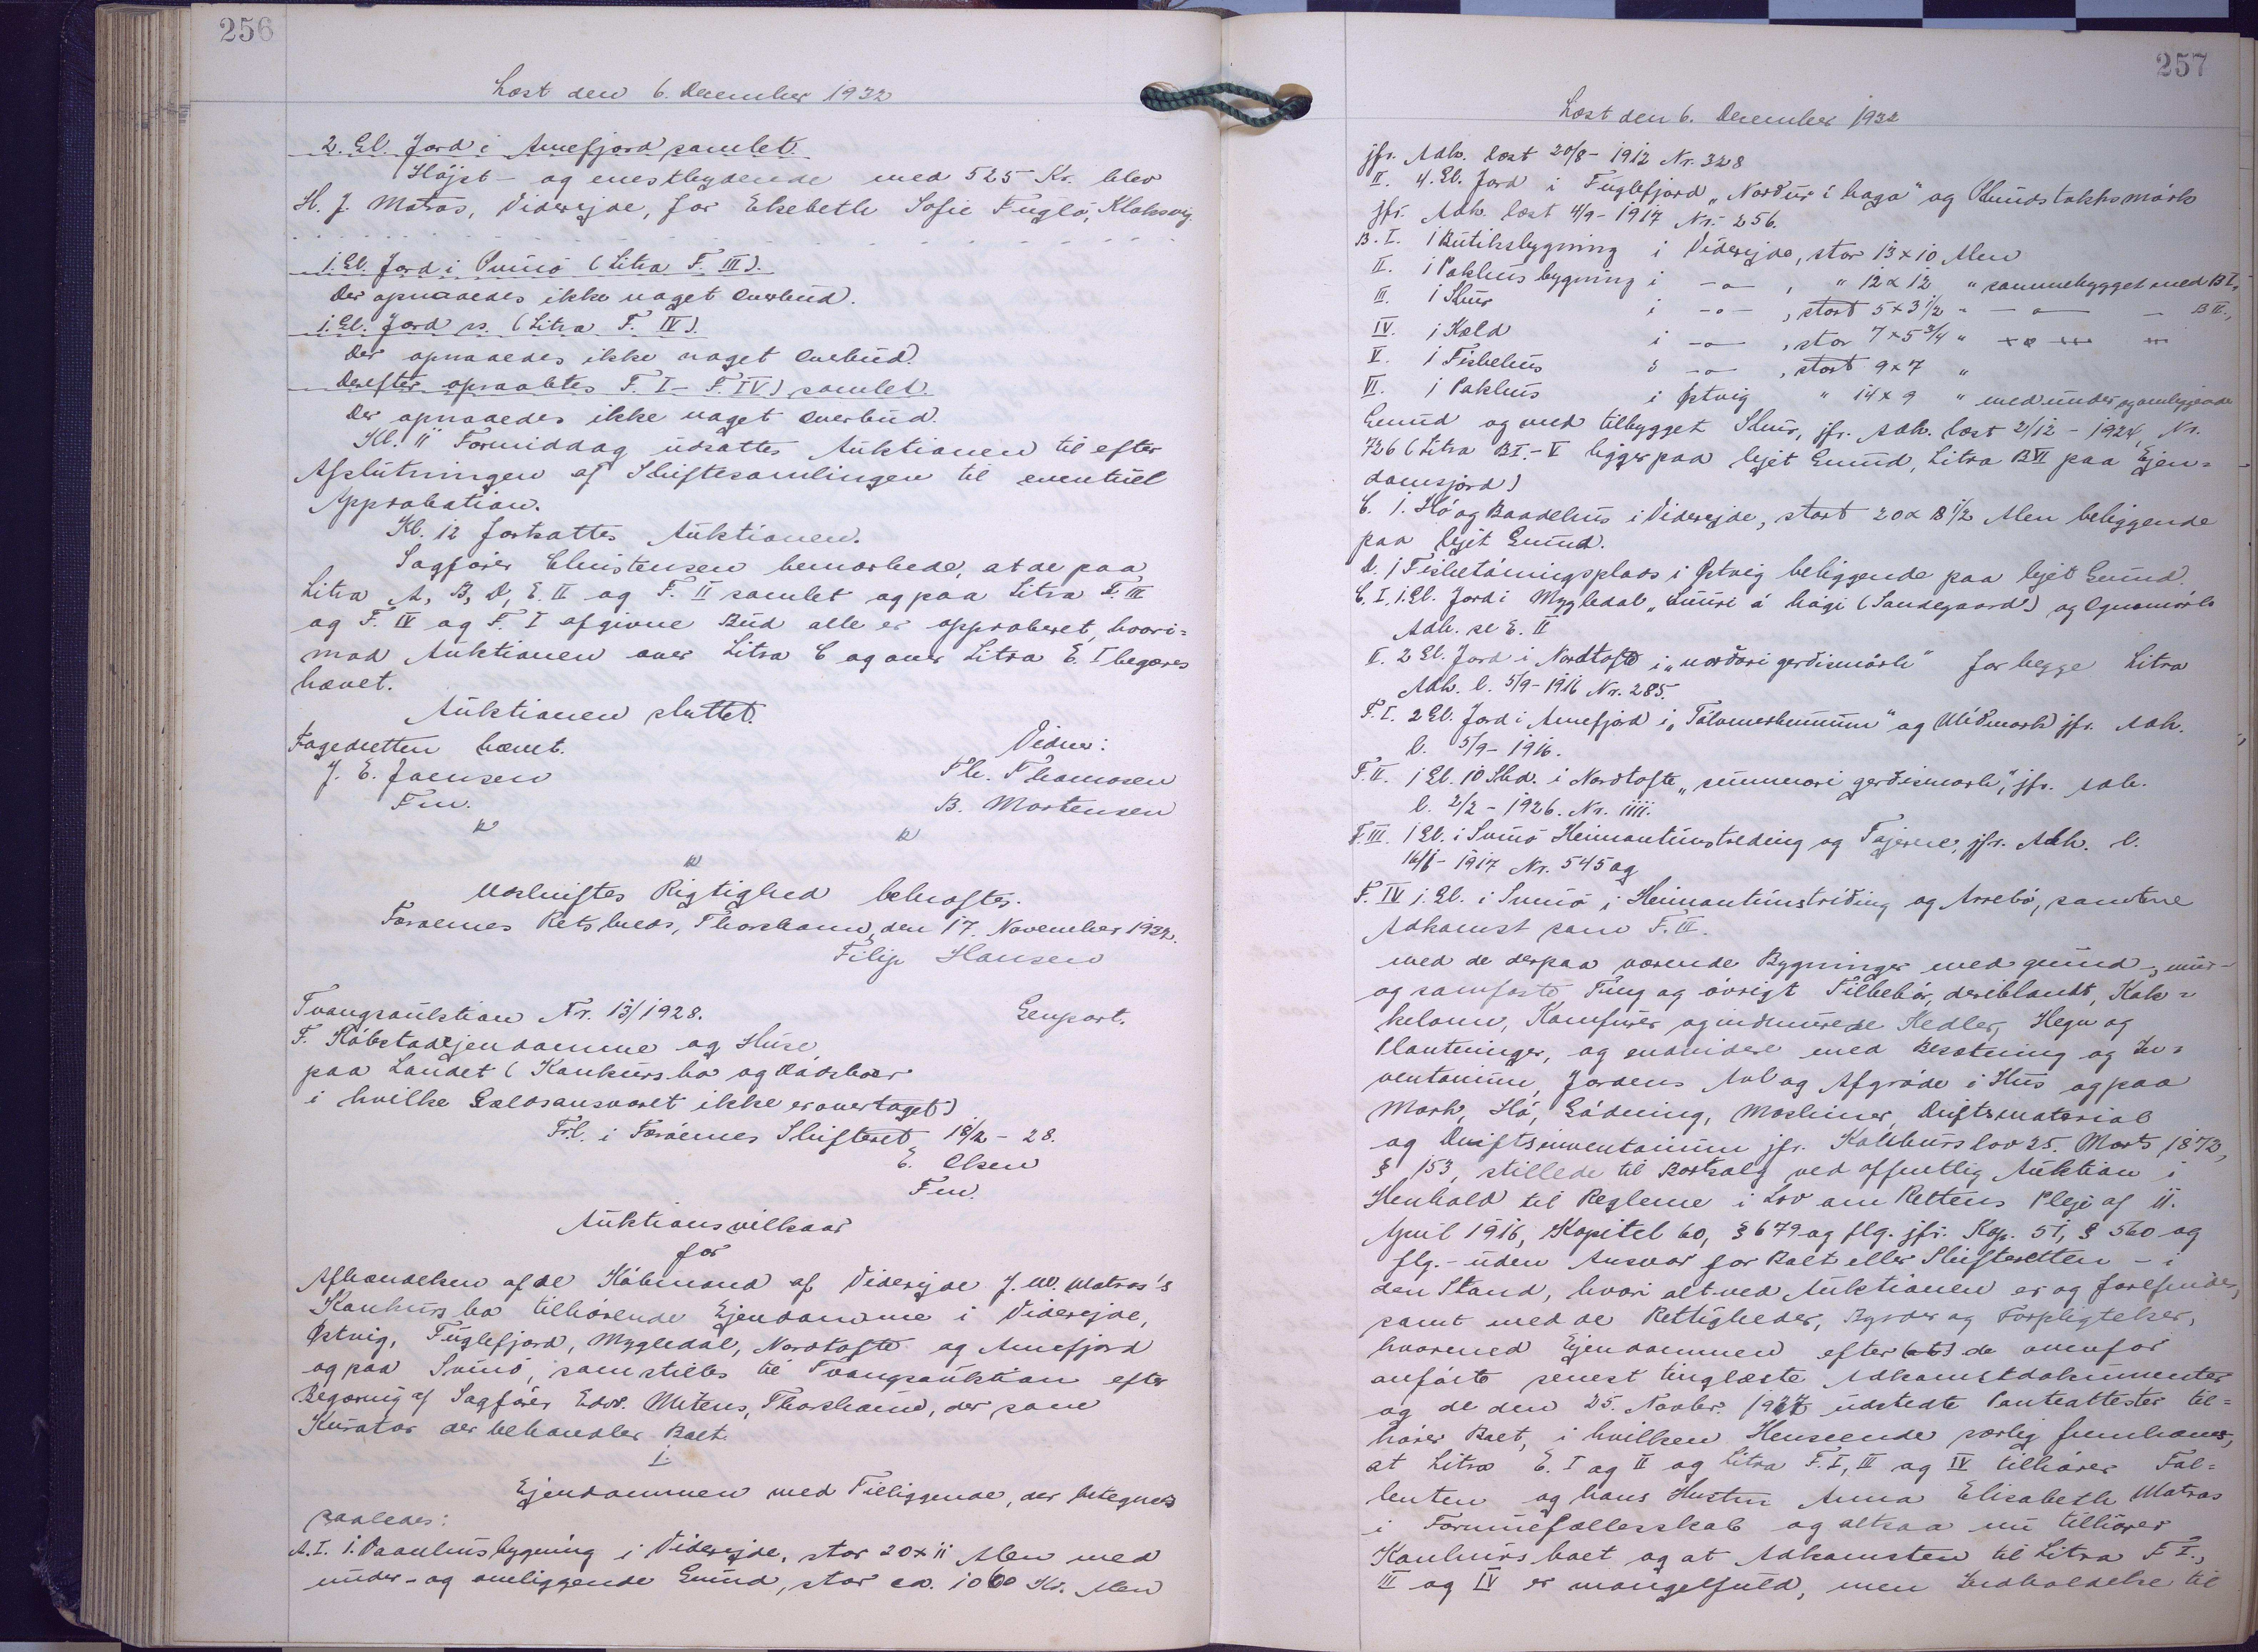 256
Læst den 6. December 1932
2. Gl. Jord i Arnefjord samlet.
Højst- og enestbydende med 525 Kr. blev
H. J. Matras, Viderejde, for Elsebeth Sofie Fuglø, Klaksvig.
1. Gl. Jord i Svinø (Litra F. III).
Der opnaaedes ikke noget Overbud.
1. Gl. Jord ss. (Litra F. IV).
Der opnaaedes ikke noget Overbud.
Derefter opraabtes F. I - F. IV) samlet.
Der opnaaedes ikke noget Overbud.
Kl. 11 Formiddag udsattes Auktionen til efter
Afslutningen af Skiftesamlingen til eventuel
Approbation.
Kl. 12 fortsattes Auktionen.
Sagfører Christensen bemærkede, at de paa
Litra A, B, D, E. II og F. II samlet og paa Litra F. III
og F. IV og F. I afgivne Bud alle er approberet, hvori=
mod Auktionen over Litra C og over Litra E. I begæres
hævet.
Auktionen sluttet.
Fogedretten hævet.
Vidner:
J. E. Joensen
Th. Thomasen
Fm.
B. Mortensen
Udskriftes Rigtighed bekræftes.
Færøernes Retskreds, Thorshavn, den 17. November 1932.
Filip Hansen
Tvangsauktion Nr. 13/1928.
Genpart.
F. Købstadejendomme og Huse
paa Landet (Konkursbo og Dødsboer
i hvilke Gældsansvaret ikke er overtaget)
Frl. i Færøernes Skifteret, 18/2 - 28.
E. Olsen
Fm.
Auktionsvilkaar
for
Afhændelsen af de Købmand af Viderejde J. W. Matras's
Konkursbo tilhørende Ejendomme i Viderejde,
Østvig, Fuglefjord, Mygledal, Nordtofte og Arnefjord
og paa Svinø, som stilles til Tvangsauktion efter
Begæring af Sagfører Edv. Mitens, Thorshavn, der som
Kurator der behandler Boet.
1.
Ejendommen med Tilliggende, der betegnes
saaledes:
A. I. 1. Vaanhusbygning i Viderejde, stor 20 x 11 Alen med
under- og omliggende Grund, stor ca. 1060 Kv. Alen
257
Læst den 6. December 1932
jfr. Adk. læst 20/8 - 1912 Nr. 328
II. 4. Gl. Jord i Fuglefjord "Norður í haga" og Ølundstakksmørk
jfr. Adk. læst 4/9 - 1917 Nr. 256.
B. I. 1 Butiksbygning i Viderejde, stor 13 x 10 Alen
II. 1 Pakhusbygning i -o- , " 12 x 12 " sammebygget med B I,
III. 1 Skur i -o- , stort 5 x 3 1/2 " -o- - B II,
IV. 1 Kæld i -o- , stor 7 x 5 3/4 "
V. 1 Fiskehus i -o- , stort 9 x 7 "
VI. 1 Pakhus i Østvig " 14 x 9 " med under og omliggende
Grund og med tilbygget Skur, jfr. Adk. læst 2/12 - 1924, Nr.
726 (Litra B I. - V ligger paa lejet Grund, Litra B VI paa Ejen=
domsjord)
C. 1. Hø og Baadehus i Viderejde, stort 20 x 8 1/2 Alen beliggende
paa lejet Grund.
D. 1 Fisketørringsplads i Østvig beliggende paa lejet Grund.
E. I, 1. Gl. Jord i Mygledal "Suðuri á hagi (Sandegaard) og Ognamørk
Adk. se E. II
II. 2 Gl. Jord i Nordtofte i "norðari gerðismørk" for begge Litra
Adk. l. 5/9 - 1916 Nr. 285.
F. I. 2 Gl. Jord i Arnefjord i og Uldmørk jfr. Adk.
l. 5/9 - 1916.
F. II. 1 Gl. 10 Skd. i Nordtofte "sunnari gerðismørk", jfr. Adk.
l. 2/2 - 1926. Nr. 1111.
F. III. 1 Gl. i Svinø Heimantúnstreding og Tejerne, jfr. Adk. l.
16/1 - 1917 Nr. 545 og
F. IV 1. Gl. i Svinø i Heimantúnstriðing og Arrebø, samtene
Adkomst som F. III.
med de derpaa værende Bygninger med grund-, mur-
og sømfaste Ting og øvrigt Tilbehør, deriblandt, Kak=
kelovne, Komfurer og indmurede Kedler, Hegn og
Plantninger, og endvidere med Besætning og In=
ventarium, Jordens Avl og Afgrøde i Hus og paa
Mark, Hø, Gødning, Maskiner, Driftsmateriel
og Driftsinventarium jfr. Konkurslov 25. Marts 1872,
§ 153, stillede til Bortsalg ved offentlig Auktion i
Henhold til Reglerne i Lov om Rettens Pleje af 11.
April 1916, Kapitel 60, § 679 og flg. jfr. Kap. 51, § 560 og
flg. - uden Ansvar for Boet eller Skifteretten - i
den Stand, hvori alt ved Auktionen er og forefindes,
samt med de Rettigheder, Byrder og Forpligtelser,
hvormed Ejendommen efter de ovenfor
anførte senest tinglæste Adkomstdokumenter
og de den 25. Novbr. 1927 udstedte Panteattester til=
hører Boet, i hvilken Henseende særlig fremhæves,
at Litra E. I og II og Litra F. I, III og IV tilhører Fal=
lenten og hans Hustru Anna Elisabeth Matras
i Formuefællesskab og altsaa nu tilhører
Konkursboet og at Adkomsten til Litra F I.,
III og IV er mangelfuld, men Indholdelse til